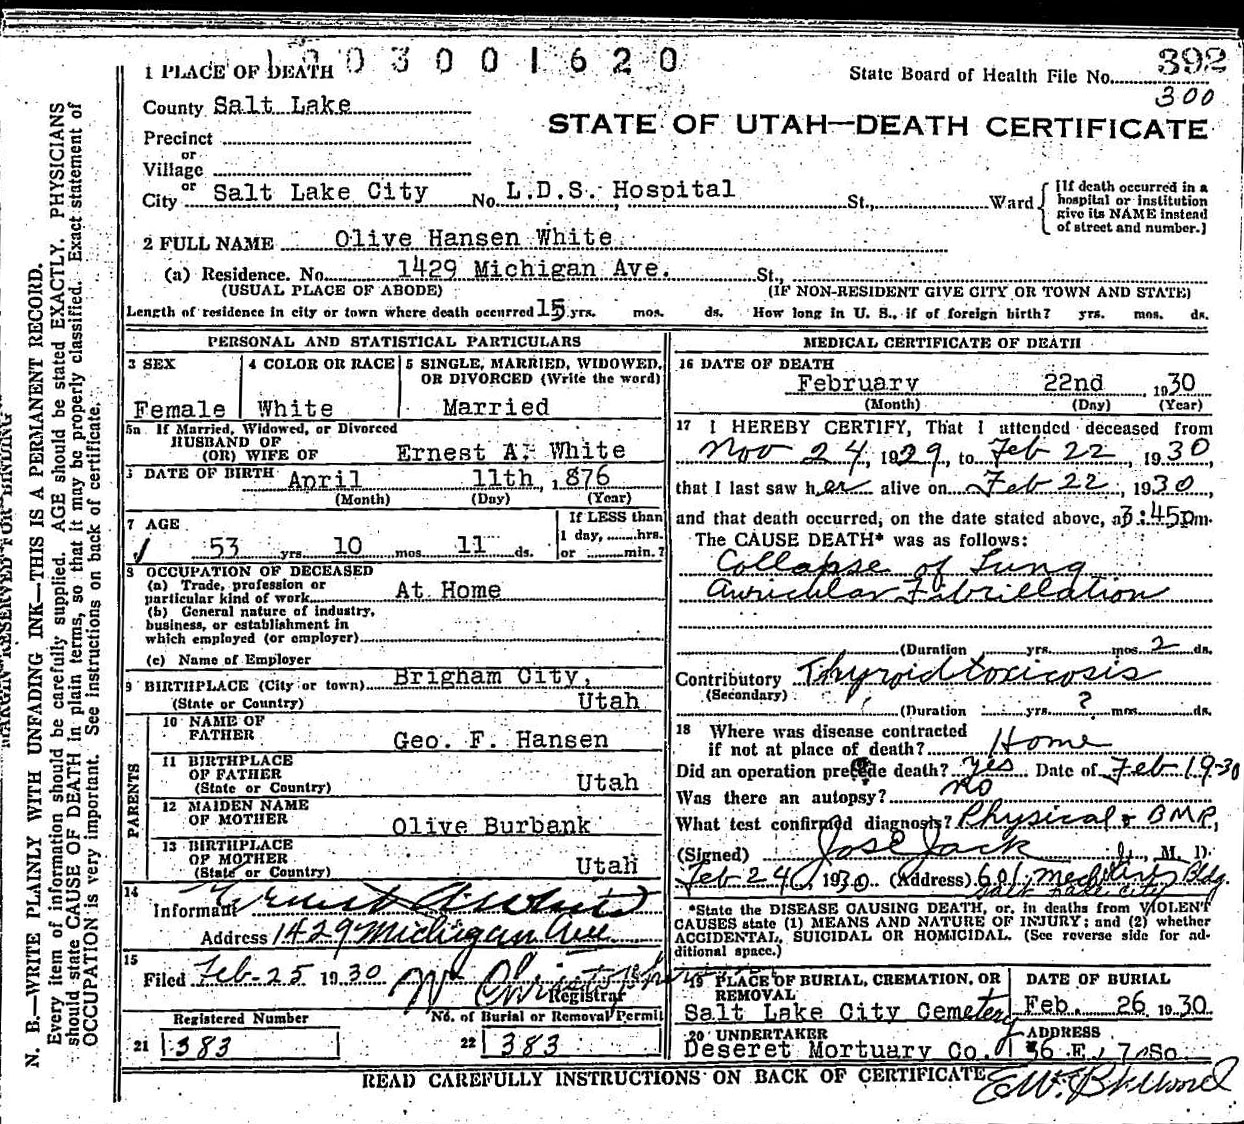 1 PLACE OF DEATH 1 9 0 3 0 0 1 6 2 0
State Board of Health File No. 392
300
County Salt Lake
STATE OF UTAH—DEATH CERTIFICATE
Precinct
or
Village
or
City Salt Lake City No. L.D.S. Hospital St., Ward
[If death occurred in a
hospital or institution
give its NAME instead
of street and number.]
2 FULL NAME Olive Hansen White
(a) Residence. No. 1429 Michigan Ave. St.,
(USUAL PLACE OF ABODE) (IF NON-RESIDENT GIVE CITY OR TOWN AND STATE)
Length of residence in city or town where death occurred 15 yrs. mos. ds. How long in U. S., if of foreign birth? yrs. mos. ds.
PERSONAL AND STATISTICAL PARTICULARS
3 SEX
Female
4 COLOR OR RACE
White
5 SINGLE, MARRIED, WIDOWED,
OR DIVORCED (Write the word)
Married
5a If Married, Widowed, or Divorced
HUSBAND OF
(OR) WIFE OF Ernest A. White
DATE OF BIRTH April 11th, 1876
(Month) (Day) (Year)
7 AGE
53 yrs. 10 mos. 11 ds.
If LESS than
1 day, hrs.
or min.?
8 OCCUPATION OF DECEASED
(a) Trade, profession or
particular kind of work At Home
(b) General nature of industry,
business, or establishment in
which employed (or employer)
(c) Name of Employer
9 BIRTHPLACE (City or town) Brigham City,
(State or Country) Utah
PARENTS
10 NAME OF
FATHER Geo. F. Hansen
11 BIRTHPLACE
OF FATHER
(State or Country) Utah
12 MAIDEN NAME
OF MOTHER Olive Burbank
13 BIRTHPLACE
OF MOTHER
(State or Country) Utah
14
Informant Ernest A. White
Address 1429 Michigan Ave
15
Filed Feb-25 1930
Registrar
Registered Number
21 1383
No. of Burial or Removal Permit
22 1383
MEDICAL CERTIFICATE OF DEATH
16 DATE OF DEATH
February 22nd, 1930
(Month) (Day) (Year)
17 I HEREBY CERTIFY, That I attended deceased from
Nov 24, 1929, to Feb 22, 1930,
that I last saw her alive on Feb 22, 1930,
and that death occurred, on the date stated above, at 3:45pm.
The CAUSE DEATH* was as follows:
Collapse of Lung
Auricular Fibrillation
(Duration yrs. mos. 2 ds.
Contributory Thyroidtoxicosis
(Secondary)
(Duration yrs. ? mos. ds.
18 Where was disease contracted
if not at place of death? Home
Did an operation precede death? yes Date of Feb 19-30
Was there an autopsy? no
What test confirmed diagnosis? Physical & BMR,
(Signed) Jos E Jack, M. D.
Feb 24, 1930 (Address) 601 Bldg.
Salt Lake City
*State the DISEASE CAUSING DEATH, or, in deaths from VIOLENT
CAUSES state (1) MEANS AND NATURE OF INJURY; and (2) whether
ACCIDENTAL, SUICIDAL OR HOMICIDAL. (See reverse side for ad-
ditional space.)
19 PLACE OF BURIAL, CREMATION, OR
REMOVAL
Salt Lake City Cemetery
DATE OF BURIAL
Feb. 26 1930
20 UNDERTAKER
Deseret Mortuary Co.
ADDRESS
36 E. 7 So.
READ CAREFULLY INSTRUCTIONS ON BACK OF CERTIFICATE
MARGIN RESERVED FOR BINDING
N. B.—WRITE PLAINLY WITH UNFADING INK—THIS IS A PERMANENT RECORD.
Every item of information should be carefully supplied. AGE should be stated EXACTLY. PHYSICIANS
should state CAUSE OF DEATH in plain terms, so that it may be properly classified. Exact statement of
OCCUPATION is very important. See instructions on back of certificate.